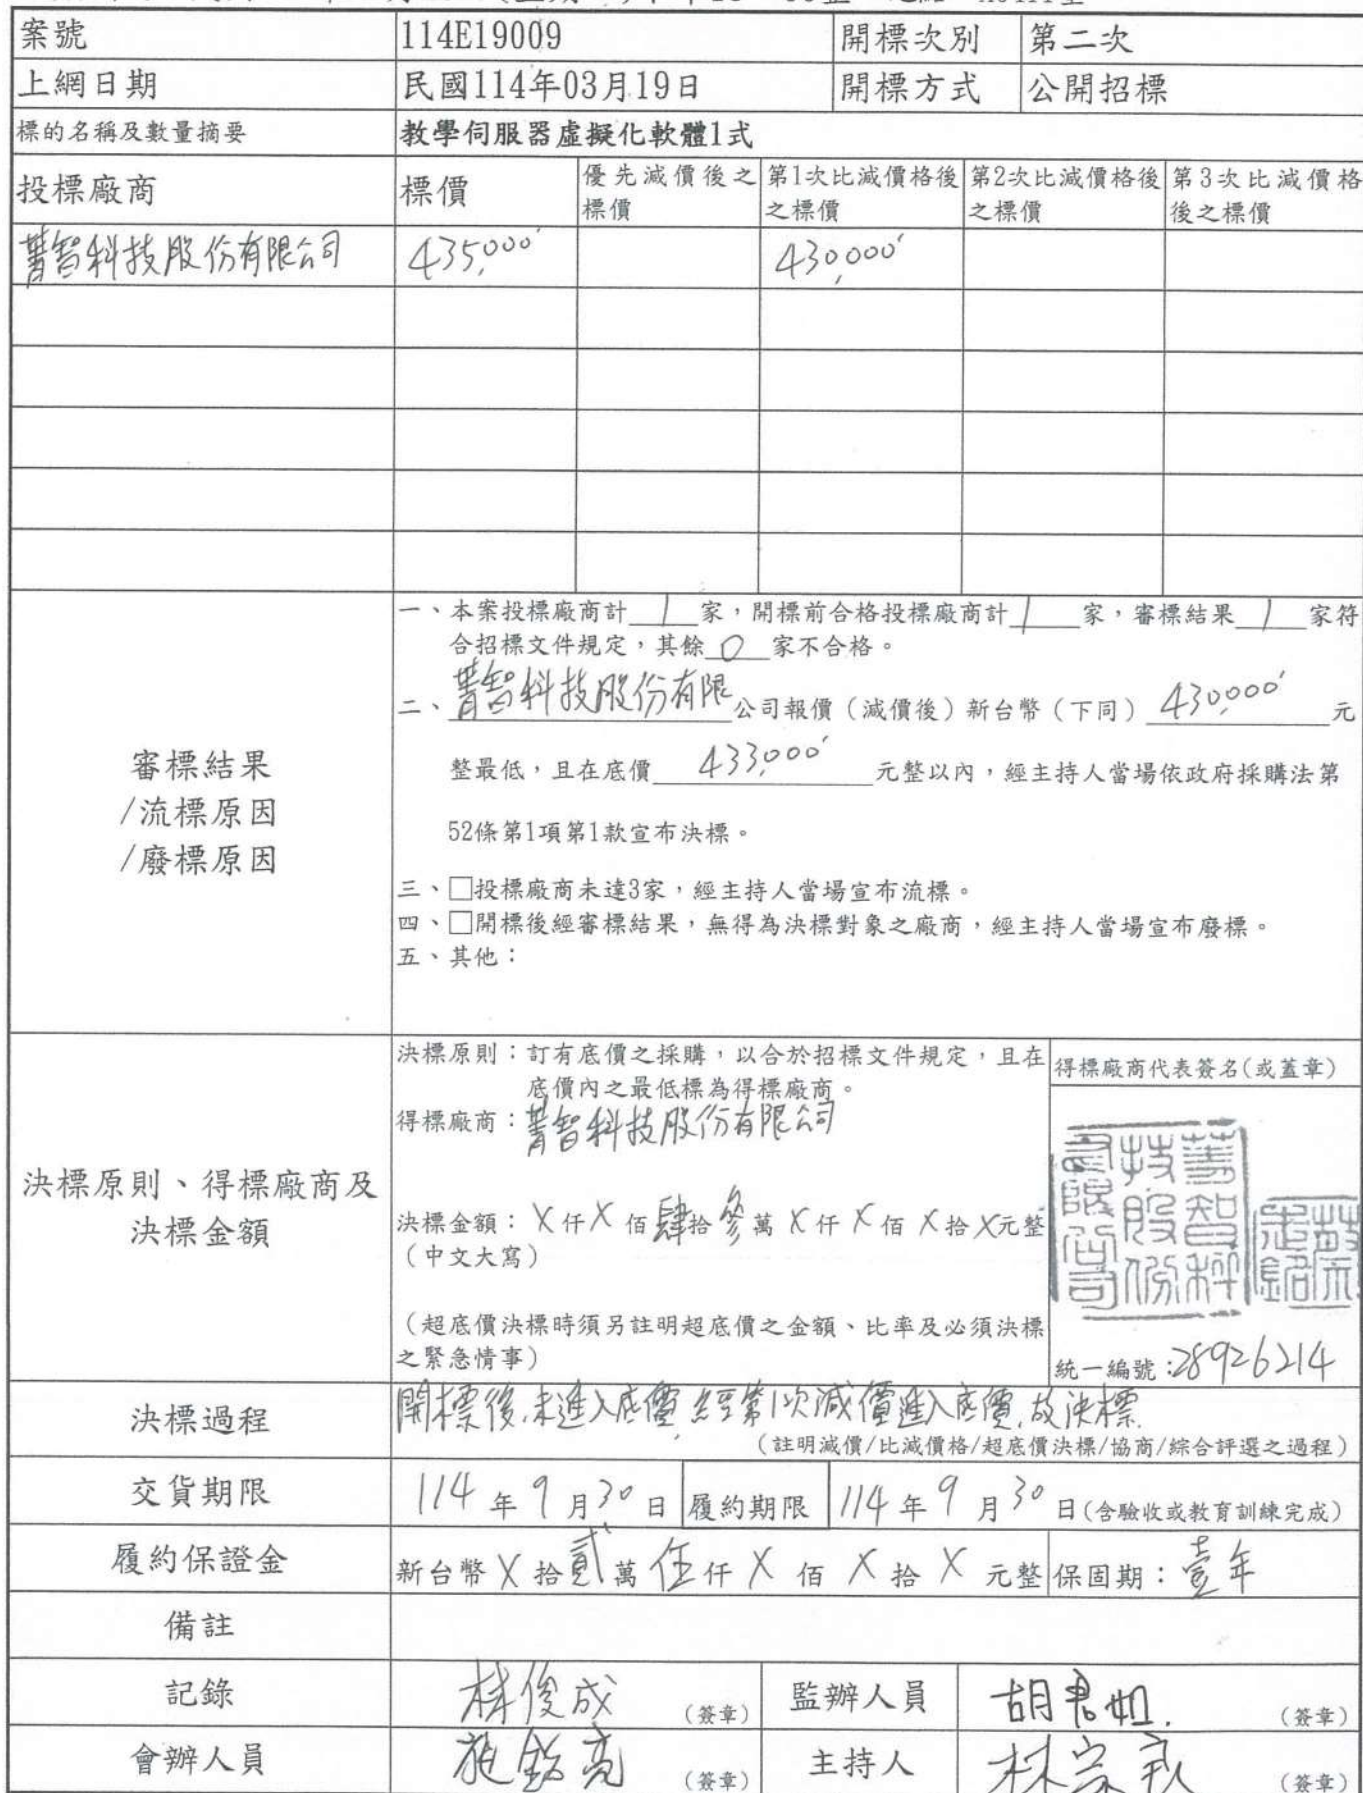 案號 114E19009 開標次別 第二次
上網日期 民國114年03月19日 開標方式 公開招標
標的名稱及數量摘要 教學伺服器虛擬化軟體1式
投標廠商 標價 優先減價後之標價 第1次比減價格後之標價 第2次比減價格後之標價 第3次比減價格後之標價
菁智科技股份有限公司 435,000 430,000
審標結果
/流標原因
/廢標原因
一、本案投標廠商計 1 家,開標前合格投標廠商計 1 家,審標結果 1 家符
合招標文件規定,其餘 0 家不合格。
二、菁智科技股份有限公司報價(減價後)新台幣(下同) 430,000 元
整最低,且在底價 433,000 元整以內,經主持人當場依政府採購法第
52條第1項第1款宣布決標。
三、□投標廠商未達3家,經主持人當場宣布流標。
四、□開標後經審標結果,無得為決標對象之廠商,經主持人當場宣布廢標。
五、其他:
決標原則、得標廠商及
決標金額
決標原則:訂有底價之採購,以合於招標文件規定,且在
底價內之最低標為得標廠商。
得標廠商:菁智科技股份有限公司
決標金額:X仟X佰肆拾參萬X仟X佰X拾X元整
(中文大寫)
(超底價決標時須另註明超底價之金額、比率及必須決標
之緊急情事)
得標廠商代表簽名(或蓋章)
菁智科技股份有限公司
統一編號:28926214
決標過程 開標後,未進入底價,經第1次減價進入底價,故決標.
(註明減價/比減價格/超底價決標/協商/綜合評選之過程)
交貨期限 114年9月30日 履約期限 114年9月30日(含驗收或教育訓練完成)
履約保證金 新台幣X拾貳萬伍仟X佰X拾X元整 保固期:壹年
備註
記錄 林俊成 (簽章) 監辦人員 胡君如. (簽章)
會辦人員 (簽章) 主持人 (簽章)